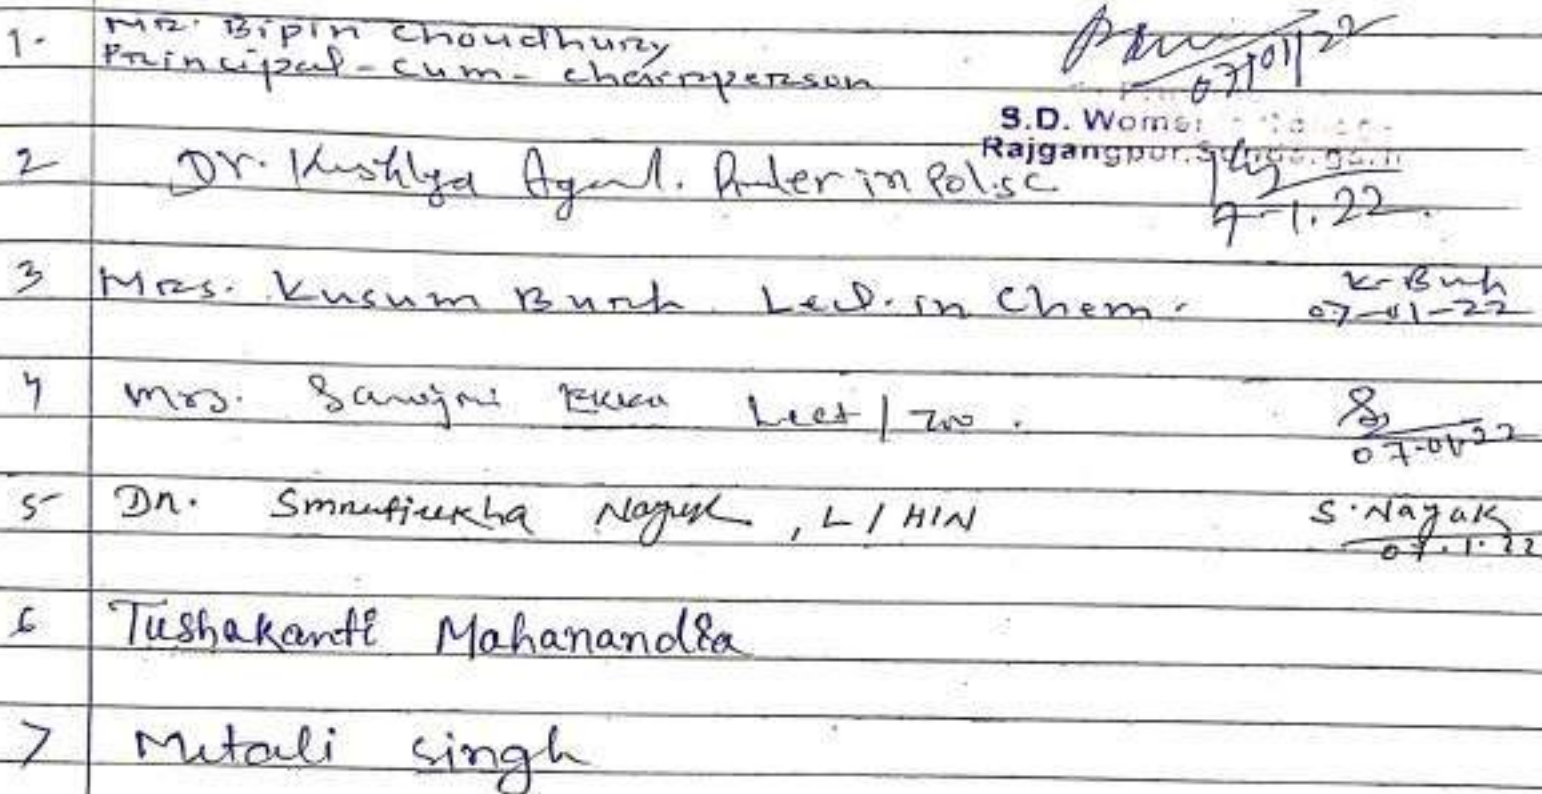 1. Mr. Bipin Choudhury
Principal-cum-chairperson
07/01/22
S.D. Women
Rajgangpur,
2 Dr. Agarwal. in Pol.sc
7-1.22.
3 Mrs. Kusum Burh Lect. in Chem. K. Burh
07-01-22
4 Mrs. Sarojni Ekka Lect / Zoo.
07-01-22
5 Dr. Smrutirekha Nayak, L/HIN S. Nayak
07.1.22
6 Tushakanti Mahanandia
7 Mitali Singh